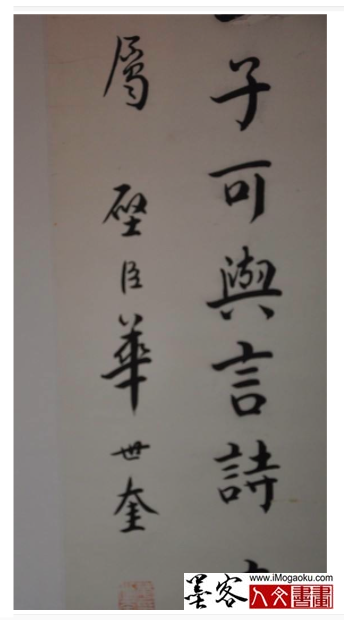 子可與言詩
属 壁臣華世奎
墨客
www.iMogaoku.com
人文書畫